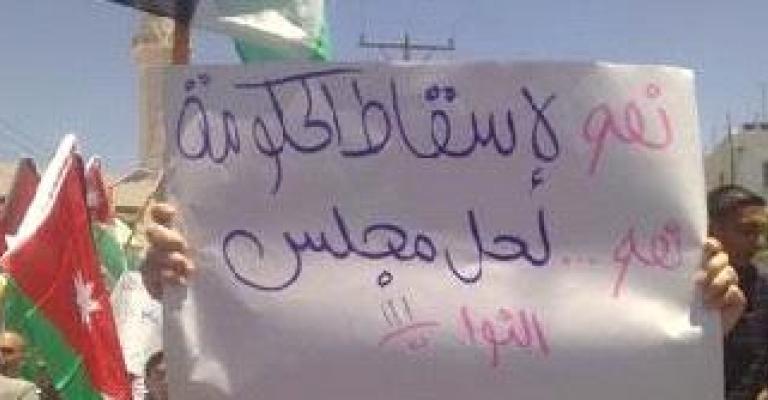 نعم لإسقاط الحكومة
نعم... لحل مجلس
النواب !!!